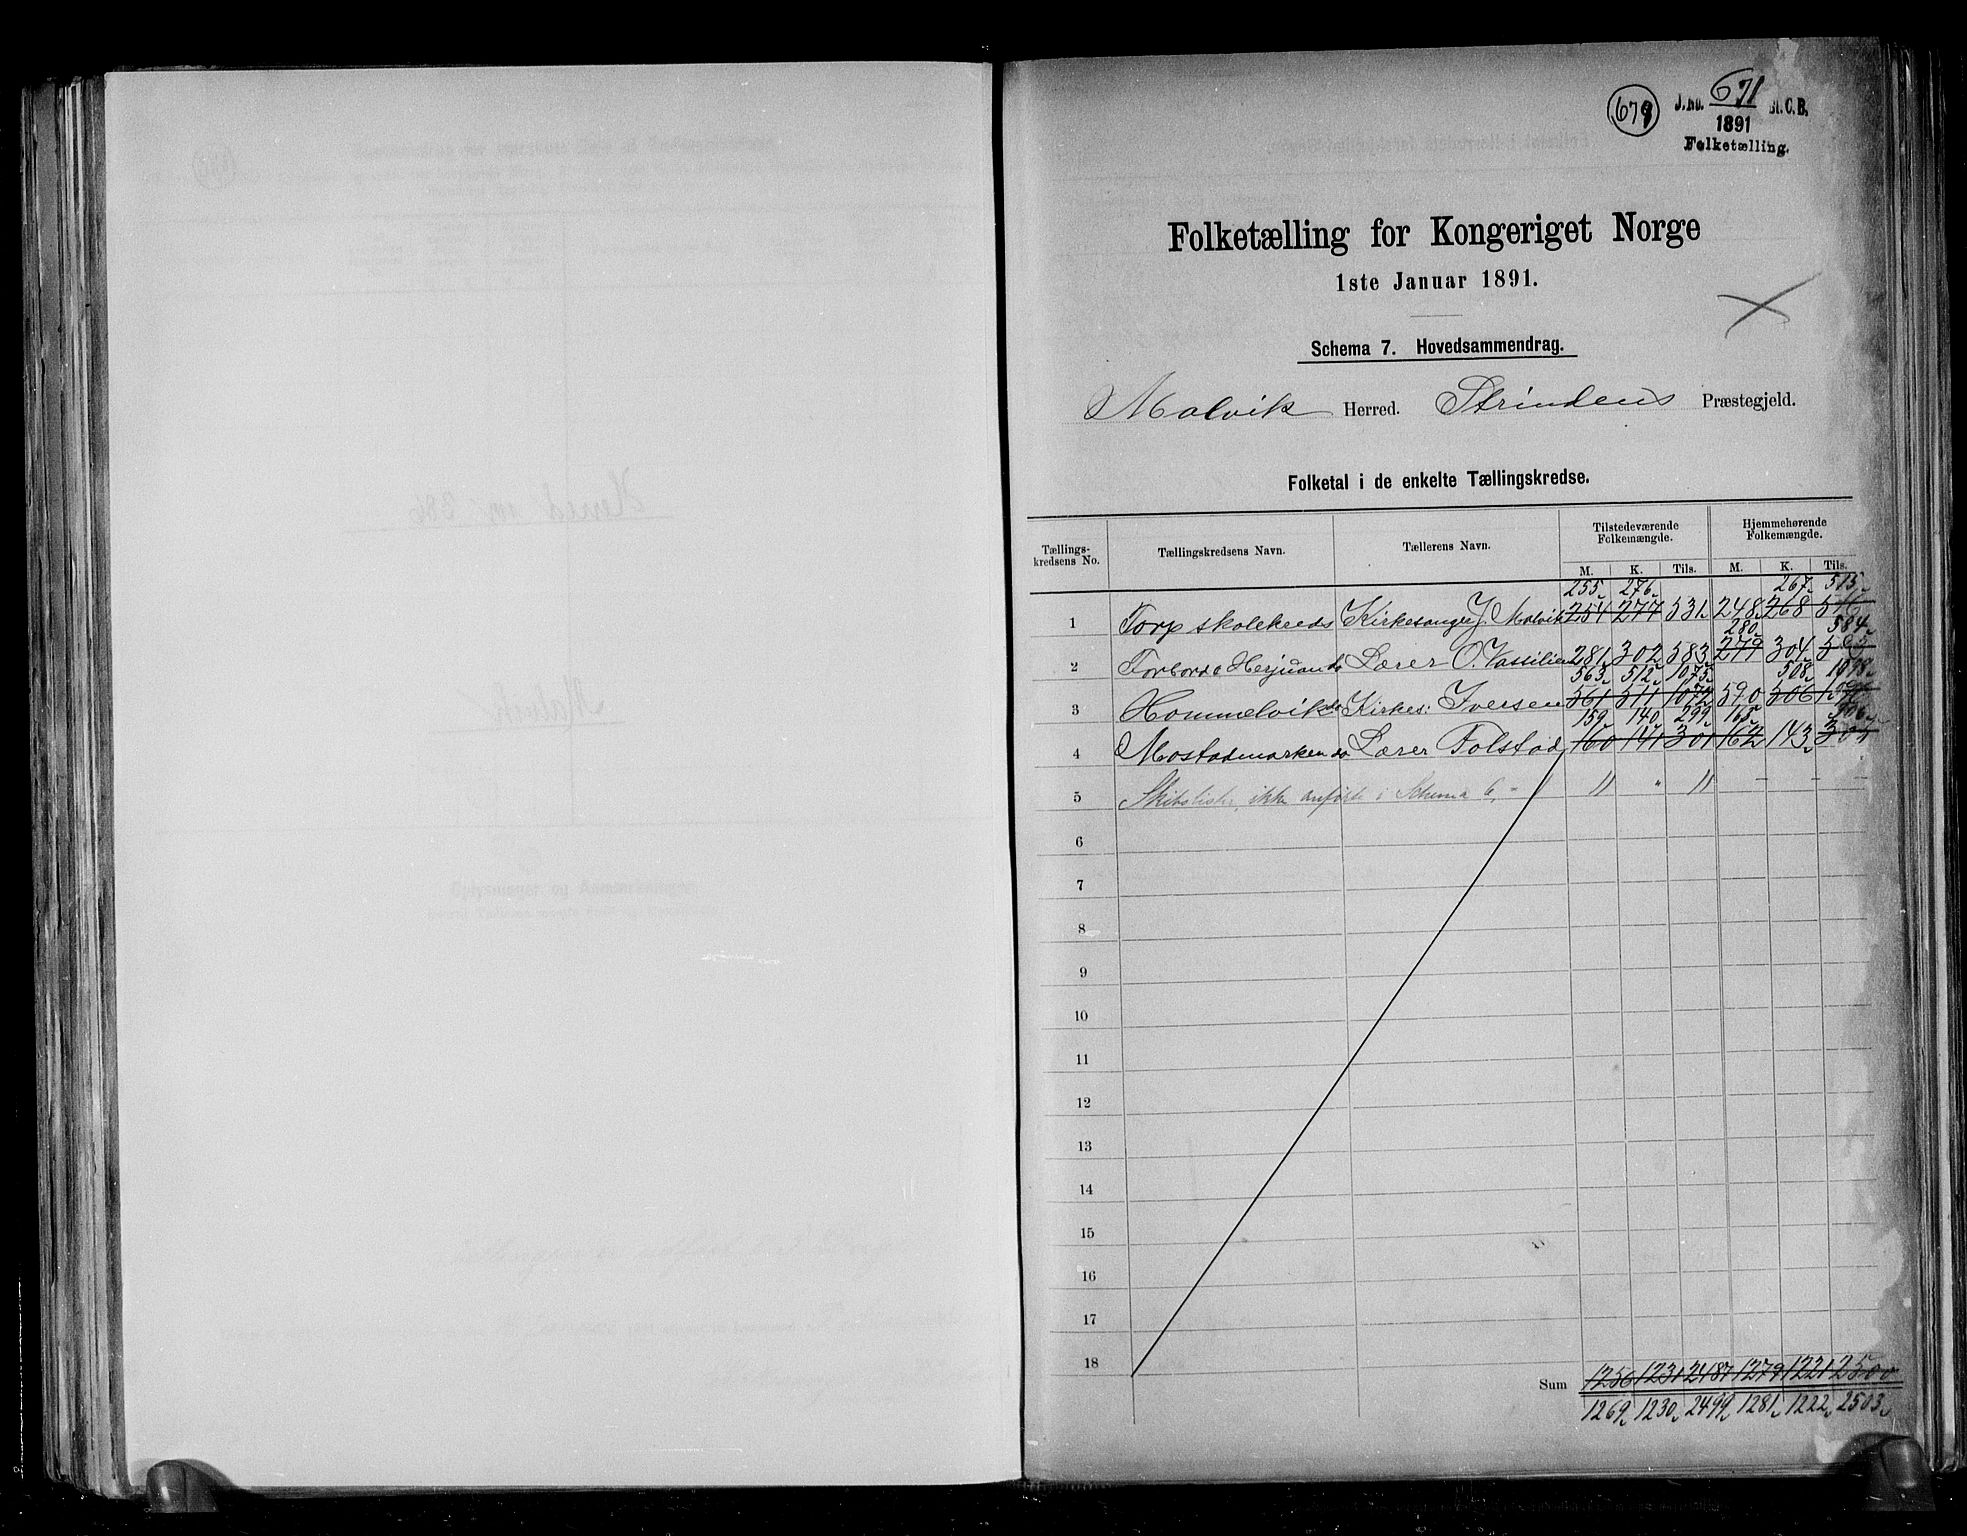 679
J.No. 671 St.C.B.
1891
Folketælling.
Folketælling for Kongeriget Norge
1ste Januar 1891.
Schema 7. Hovedsammendrag.
Malvik Herred. Strindens Præstegjeld.
Folketal i de enkelte Tællingskredse.
Tællings-kredsens No. Tællingskredsens Navn. Tællerens Navn. Tilstedeværende Folkemængde. Hjemmehørende Folkemængde.
M. K. Tils. M. K. Tils.
255 276 267 515
1 Torp skolekreds Kirkesanger J. Malvik 254 277 531 248 268 516
280 584
2 Forbord o Herjuan do Lærer O. Vassilien 281 302 583 279 304 583
563 512 1075 508 1098
3 Hommelvik do Kirkes: Iversen 561 511 1072 590 506 1096
159 140 299 163 306
4 Mostadmarken do Lærer Folstad 160 141 301 162 143 305
5 Skibslister, ikke anførte i Schema 6, - 11 " 11 - - -
6
7
8
9
10
11
12
13
14
15
16
17
18
Sum 1256 1231 2487 1279 1221 2500
1269 1230 2499 1281 1222 2503